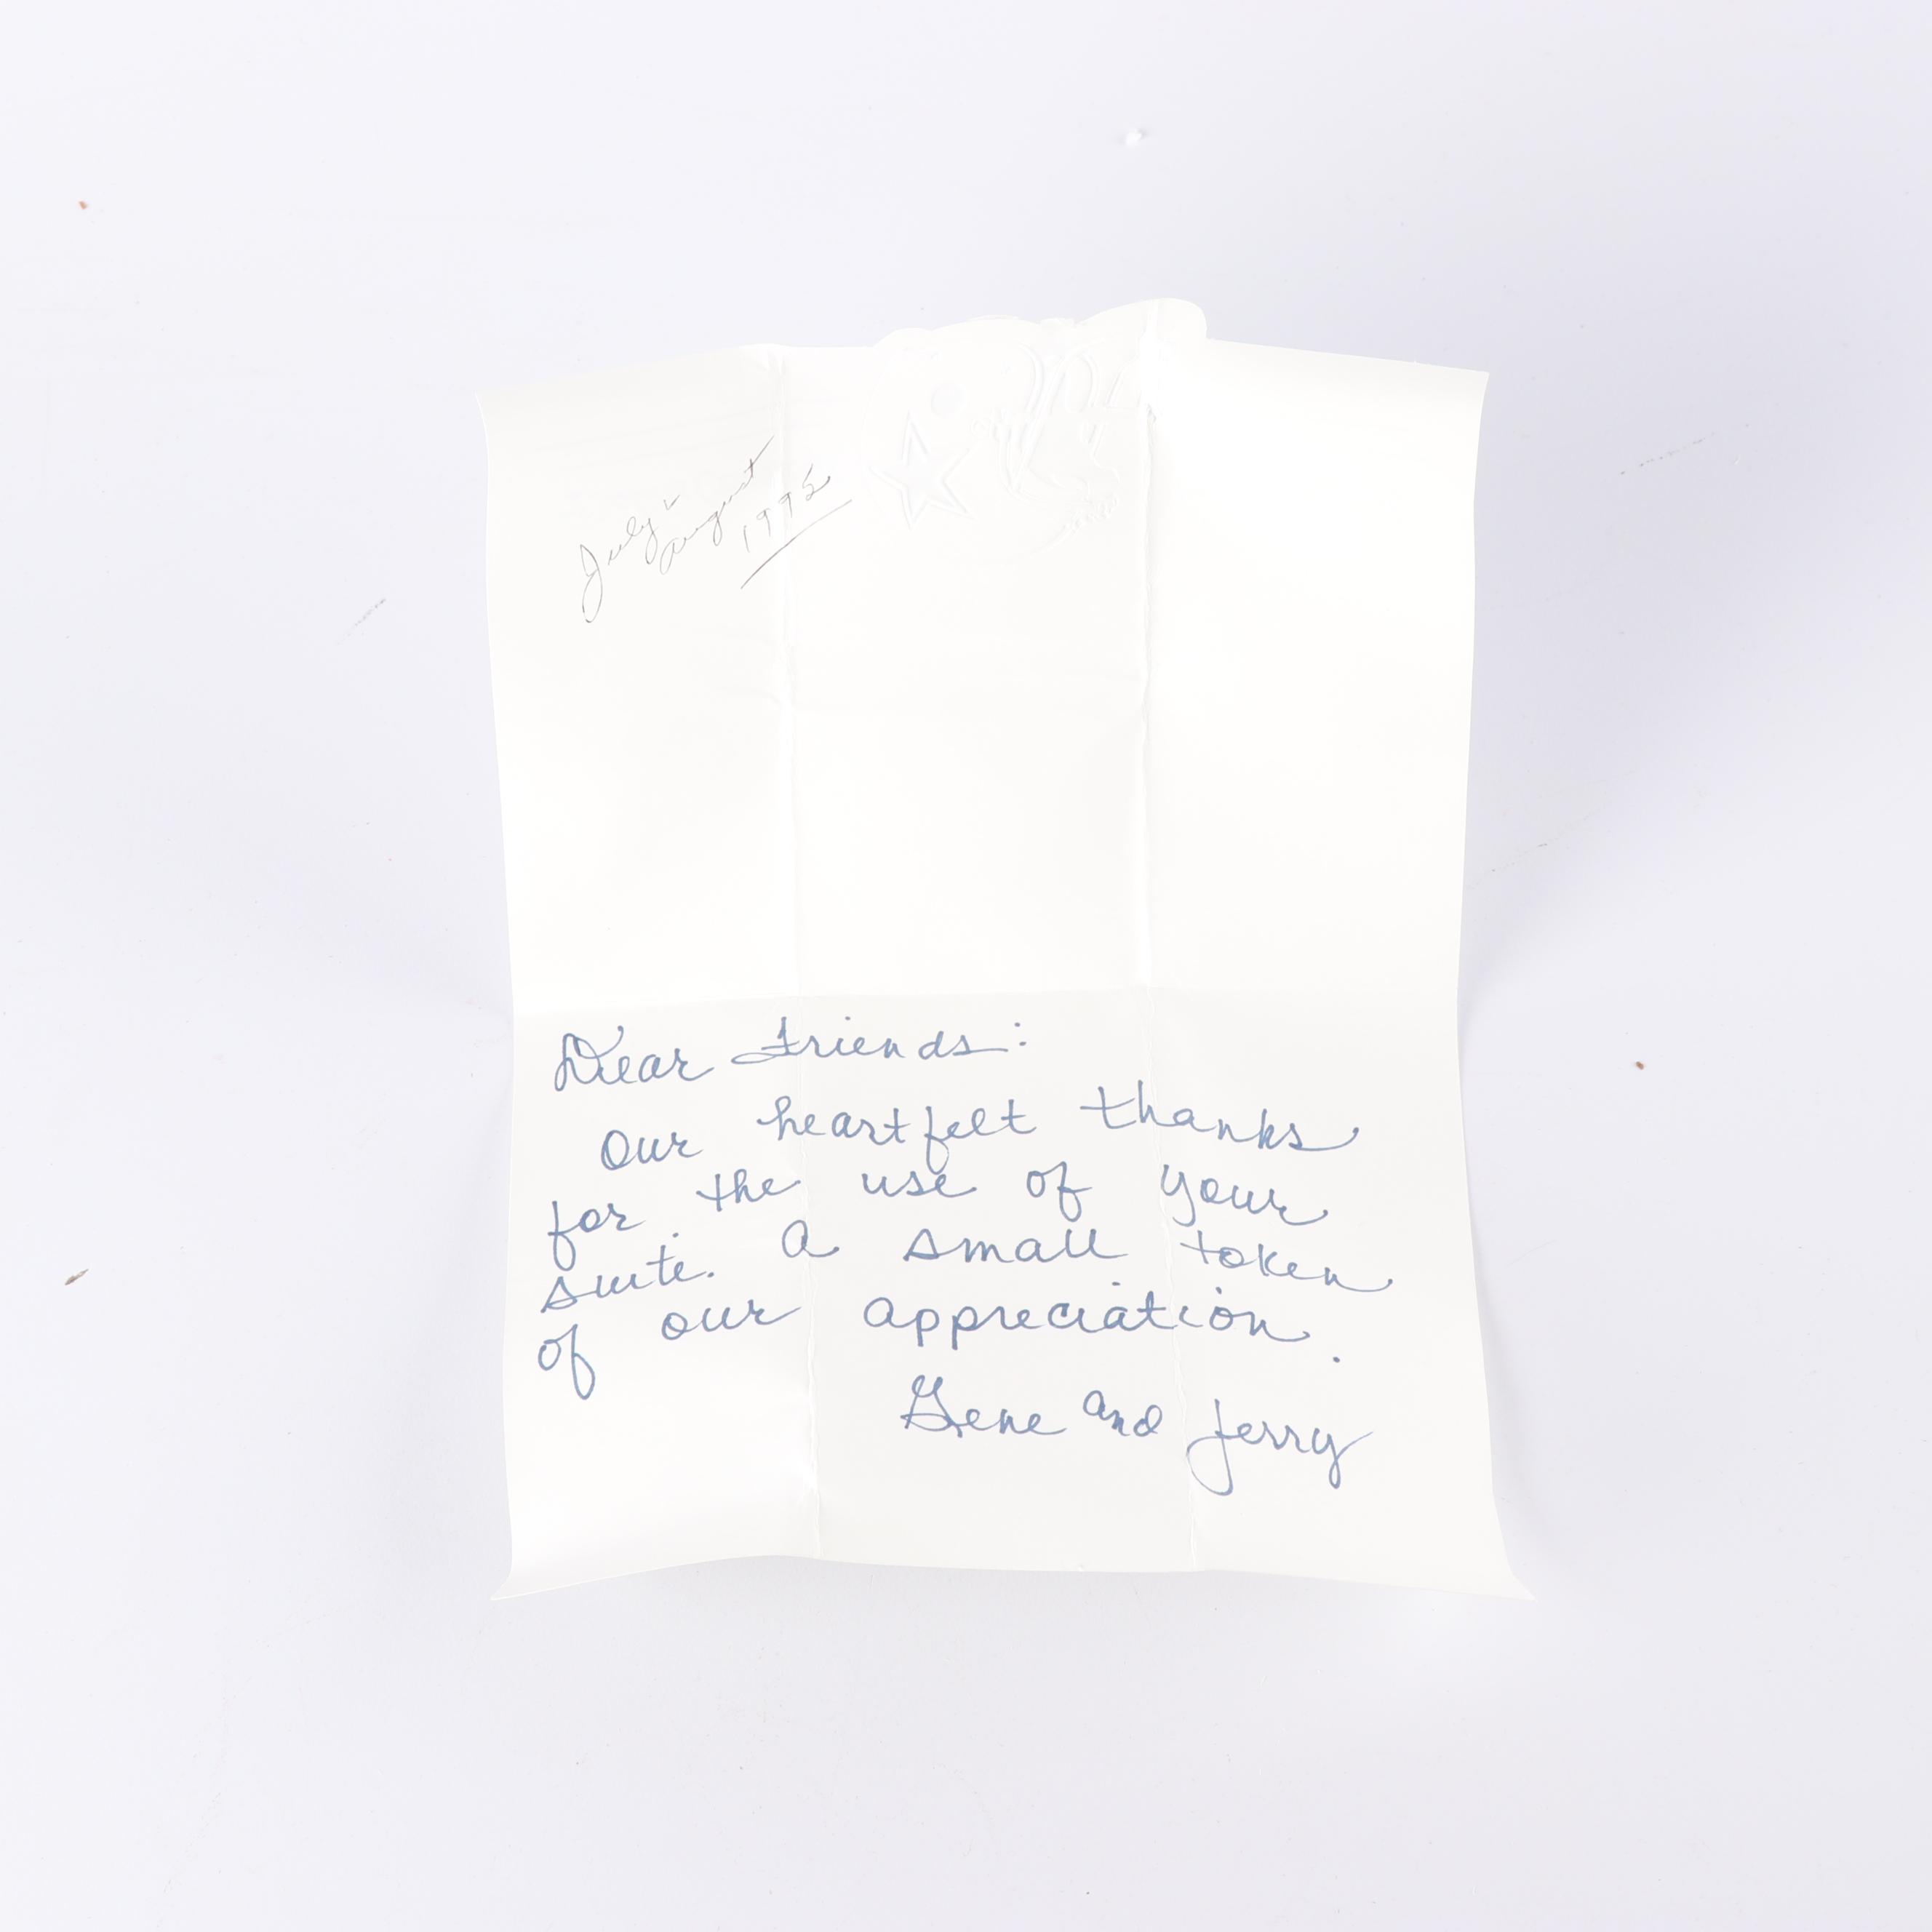 July &
August
1995
Dear Friends:
Our heartfelt thanks
for the use of your
suite. A small token
of our appreciation.
Gene and Jerry